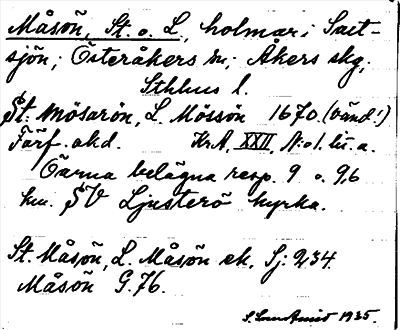 Måsön, St. o. L., holmar i Salt-
sjön; Österåkers sn; Åkers skg,
Sthlms l.
St. Mösarön, L. Mössön 1670. (vänd!)
Färf. akd. Kr.A, XXII, N:o 1. lit. a.
Öarna belägna resp. 9 o. 9,6
km. SV Ljusterö kyrka.
St. Måsön, L. Måsön ek. Sj: 234.
Måsön G. 76.
1935.